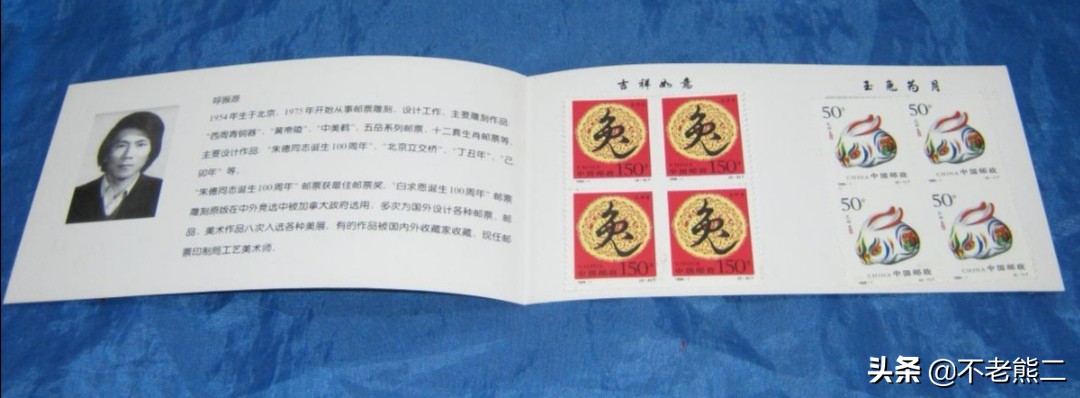 呼振源
1954年生于北京，1975年开始从事邮票雕刻、设计工作。主要雕刻作品:
“西周青铜器”、“黄帝陵”、“中美鹤”，五品系列邮票，十二套生肖邮票等。
主要设计作品:“朱德同志诞生100周年”、“北京立交桥”、“丁丑年”、“己
卯年”等。
“朱德同志诞生100周年”邮票获最佳邮票奖。“白求恩诞生100周年”邮票
雕刻原版在中外竞选中被加拿大政府选用，多次为国外设计各种邮票、邮
品、美术作品八次入选各种美展，有的作品被国内外收藏家收藏。现任邮
票印制局工艺美术师。
吉祥如意
兔
中国邮政 150分
兔
中国邮政 150分
兔
中国邮政 150分
兔
中国邮政 150分
玉兔为月
50分
CHINA中国邮政
50分
CHINA中国邮政
50分
CHINA中国邮政
50分
CHINA中国邮政
头条 @不老熊二